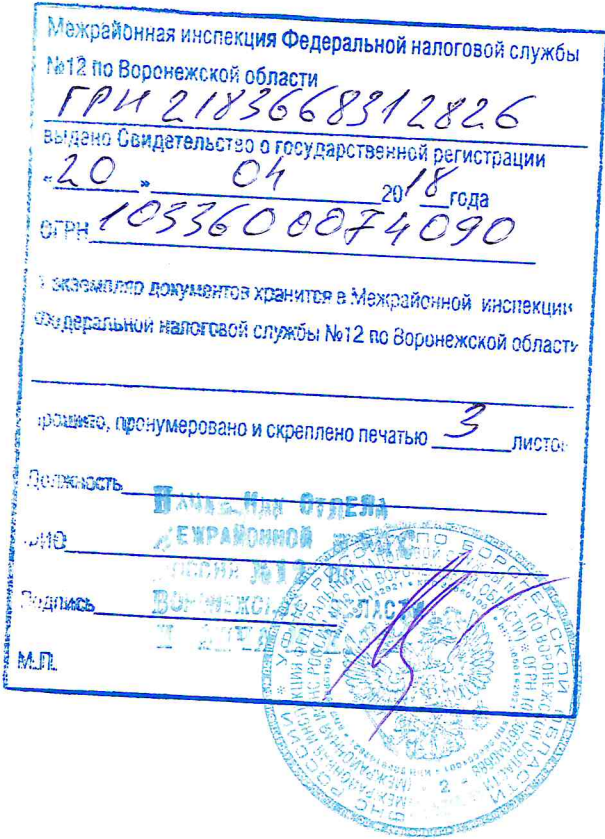 Межрайонная инспекция Федеральной налоговой службы
№12 по Воронежской области
ГРН 2183668312826
выдано Свидетельство о государственной регистрации
«20» 04 2018 года
ОГРН 1033600074090
экземпляр документов хранится в Межрайонной инспекции
Федеральной налоговой службы №12 по Воронежской области
прошито, пронумеровано и скреплено печатью 3 листов
Должность
ОТДЕЛА
ФИО
МЕЖРАЙОННОЙ
РОССИИ №12
Подпись
М.П.